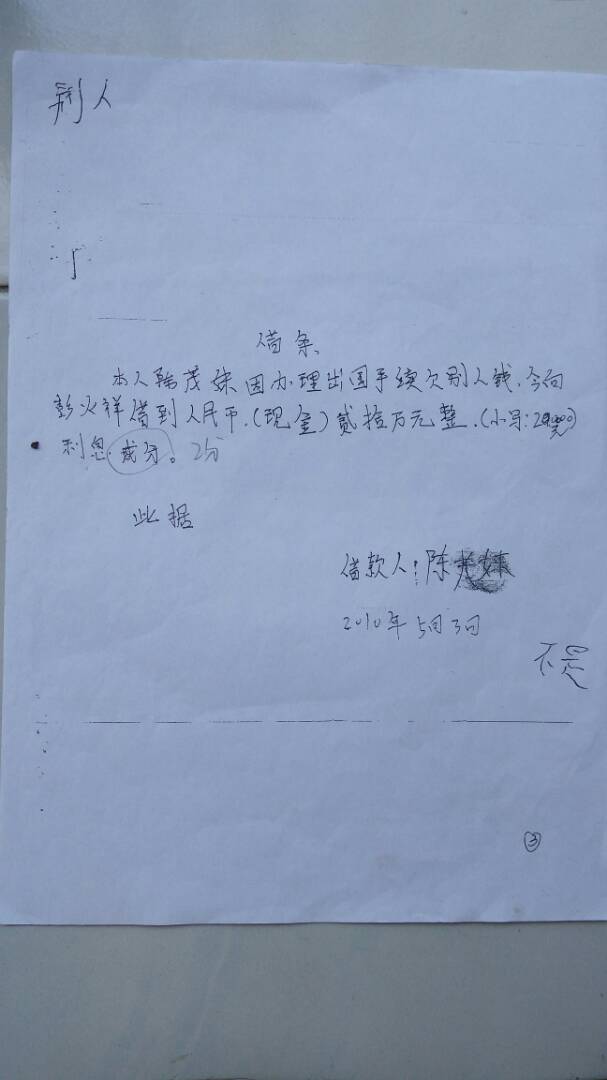 别人
借条
本人 茂妹因办理出国手续欠别人钱.今向
彭火祥借到人民币.(现金)贰拾万元整.(小写:
利息:贰分。2分
此据
借款人:陈
2010年5月3日
不是
③